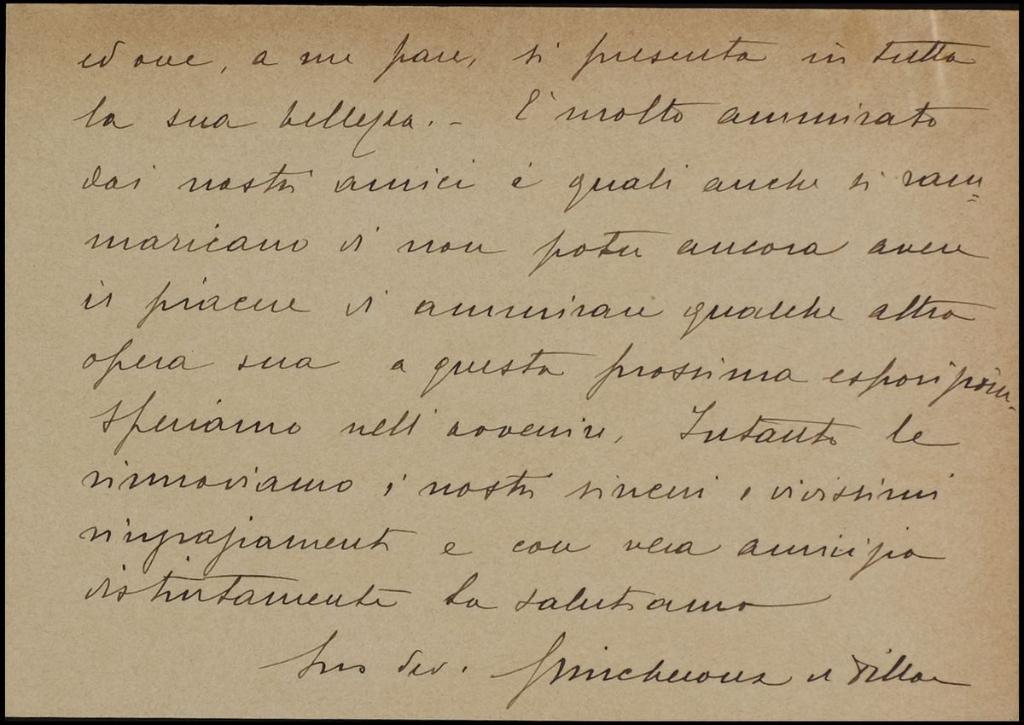 ed ove, a me pare, si presenta in tutta
la sua bellezza. - È molto ammirato
dai nostri amici i quali anche si ram=
maricano di non poter ancora avere
il piacere di ammirare qualche altra
opera sua a questa prossima esposizione.
Speriamo nell'avvenire. Intanto le
rinnoviamo i nostri sinceri e vivissimi
ringraziamenti e con vera amicizia
distintamente la salutiamo
Suo dev.